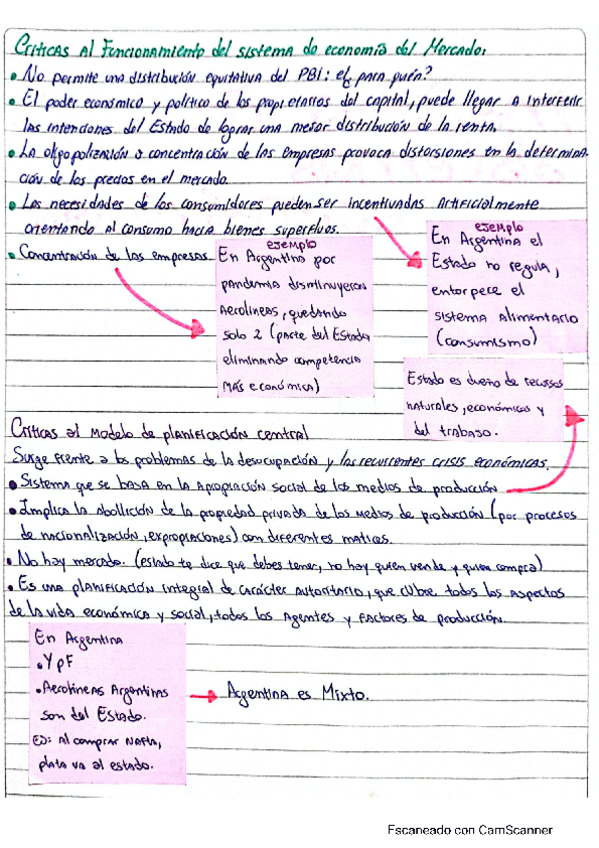 Críticas al Funcionamiento del sistema de economía del Mercado:
• No permite una distribución equitativa del PBI: el ¿para quién?
• El poder económico y político de los propietarios del capital, puede llegar a interferir
las intenciones del Estado de lograr una mejor distribución de la renta.
• La oligopolización o concentración de las empresas provoca distorsiones en la determina-
ción de los precios en el mercado.
• Las necesidades de los consumidores pueden ser incentivadas artificialmente
orientando al consumo hacia bienes superfluos.
• Concentración de las empresas.
ejemplo
En Argentina por
pandemia disminuyeron
Aerolíneas, quedando
solo 2 (parte del Estado
eliminando competencia
más económica)
ejemplo
En Argentina el
Estado no regula,
entorpece el
sistema alimentario
(consumismo)
Estado es dueño de recursos
naturales, económicos y
del trabajo.
Críticas al modelo de planificación central
Surge frente a los problemas de la desocupación y las recurrentes crisis económicas.
• Sistema que se basa en la apropiación social de los medios de producción
• Implica la abolición de la propiedad privada de los medios de producción (por procesos
de nacionalización, expropiaciones) con diferentes matices.
• No hay mercado. (estado te dice que debes tener, no hay quien vende y quien compra)
• Es una planificación integral de carácter autoritario, que cubre todos los aspectos
de la vida económica y social, todos los agentes y factores de producción.
En Argentina
• YPF
• Aerolíneas Argentinas
son del Estado.
EJ: al comprar nafta,
plata va al estado.
Argentina es Mixto.
Escaneado con CamScanner